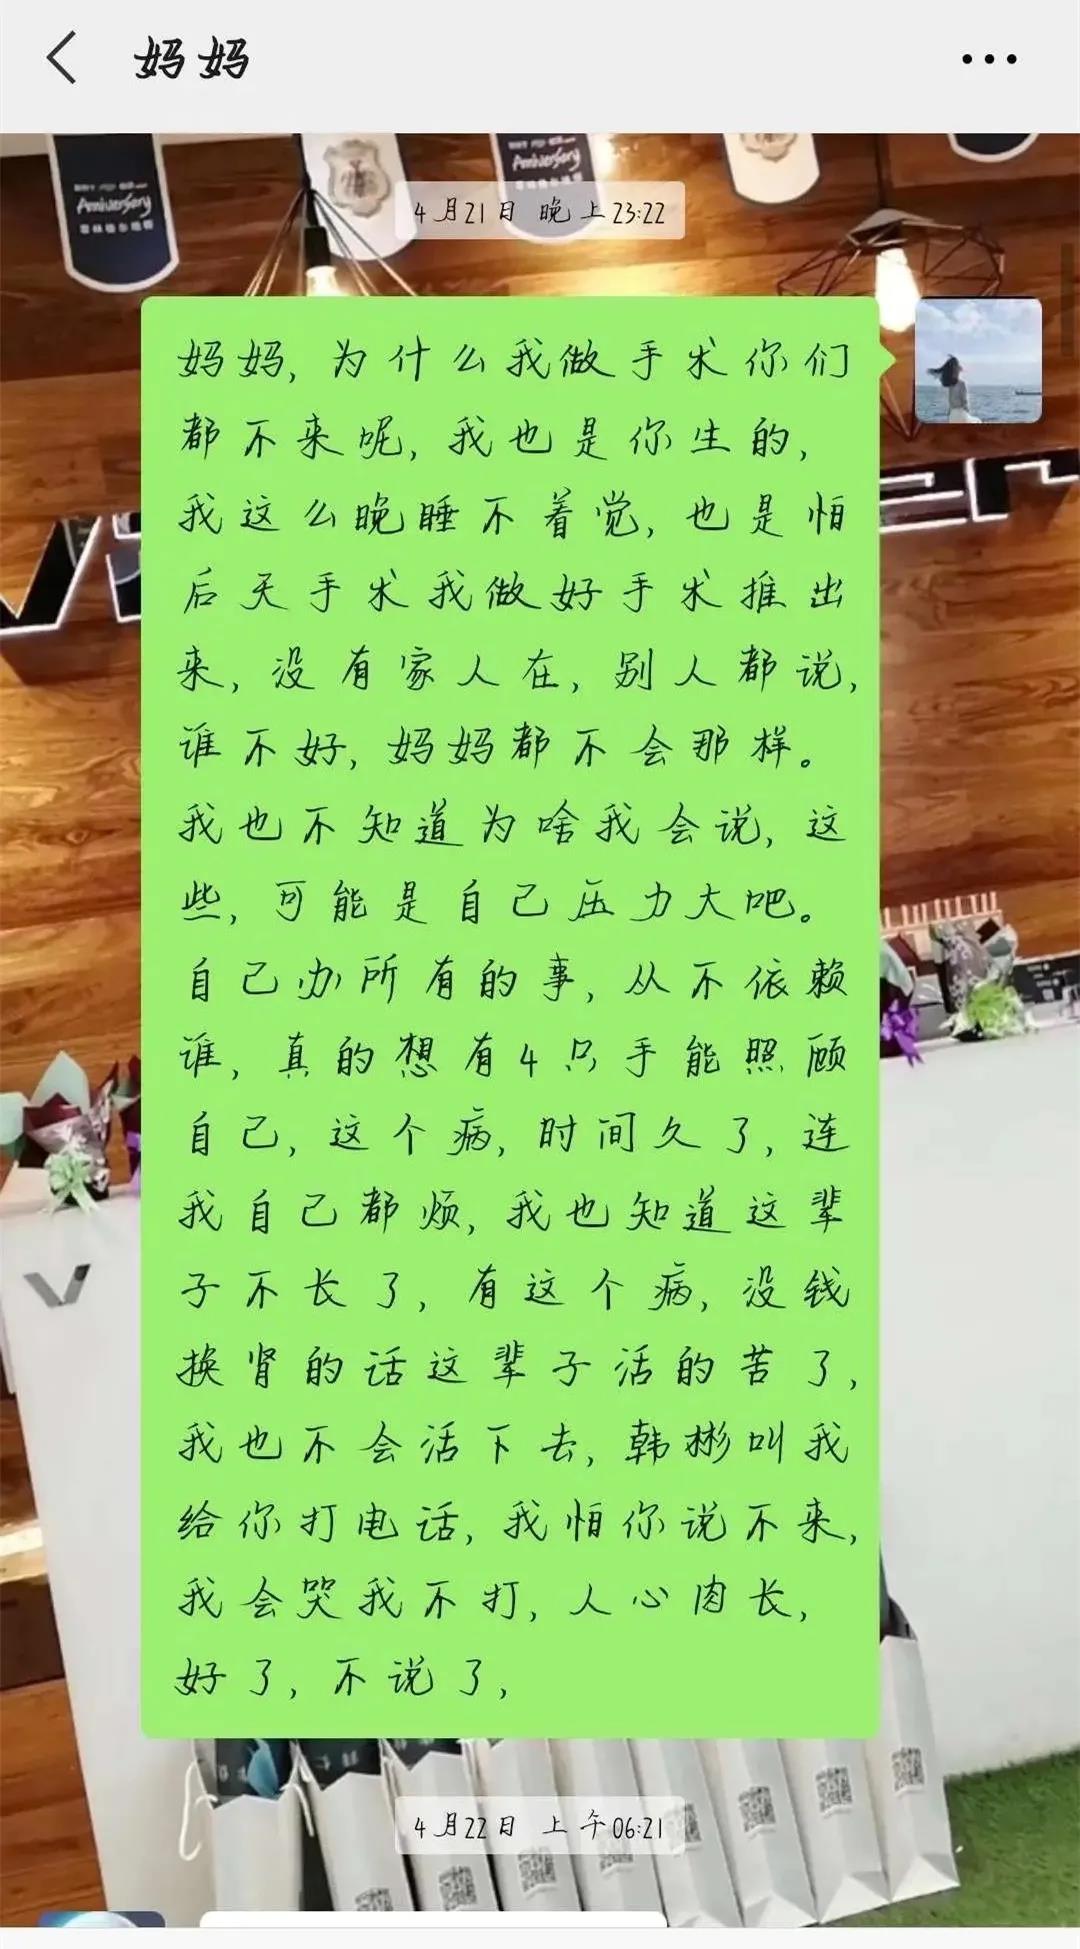 妈妈
4月21日 晚上23:22
Anniversary
Anniversary
妈妈,为什么我做手术你们
都不来呢,我也是你生的,
我这么晚睡不着觉,也是怕
后天手术我做好手术推出
来,没有家人在,别人都说,
谁不好,妈妈都不会那样。
我也不知道为啥我会说,这
些,可能是自己压力大吧。
自己办所有的事,从不依赖
谁,真的想有4只手能照顾
自己,这个病,时间久了,连
我自己都烦,我也知道这辈
子不长了,有这个病,没钱
换肾的话这辈子活的苦了,
我也不会活下去,韩彬叫我
给你打电话,我怕你说不来,
我会哭我不打,人心肉长,
好了,不说了,
4月22日 上午06:21